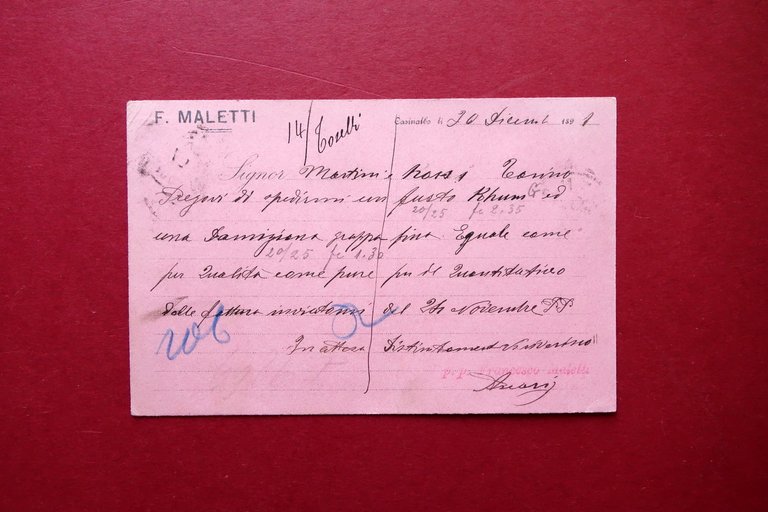 F. MALETTI
14/ Torelli
Casinalbo li 20 Dicemb 1891
Signor Martini e Rossi Torino
Pregovi di spedirmi un fusto Rhum ed
20/25 fr 2.35
una Damigiana grappa fina Eguale come
20/25 fr 1.30
per Qualità come pure per il Quantitativo
della fattura inviatami del 24 Novembre P.P.
206
In attesa Distintamente
pp. Francesco Maletti